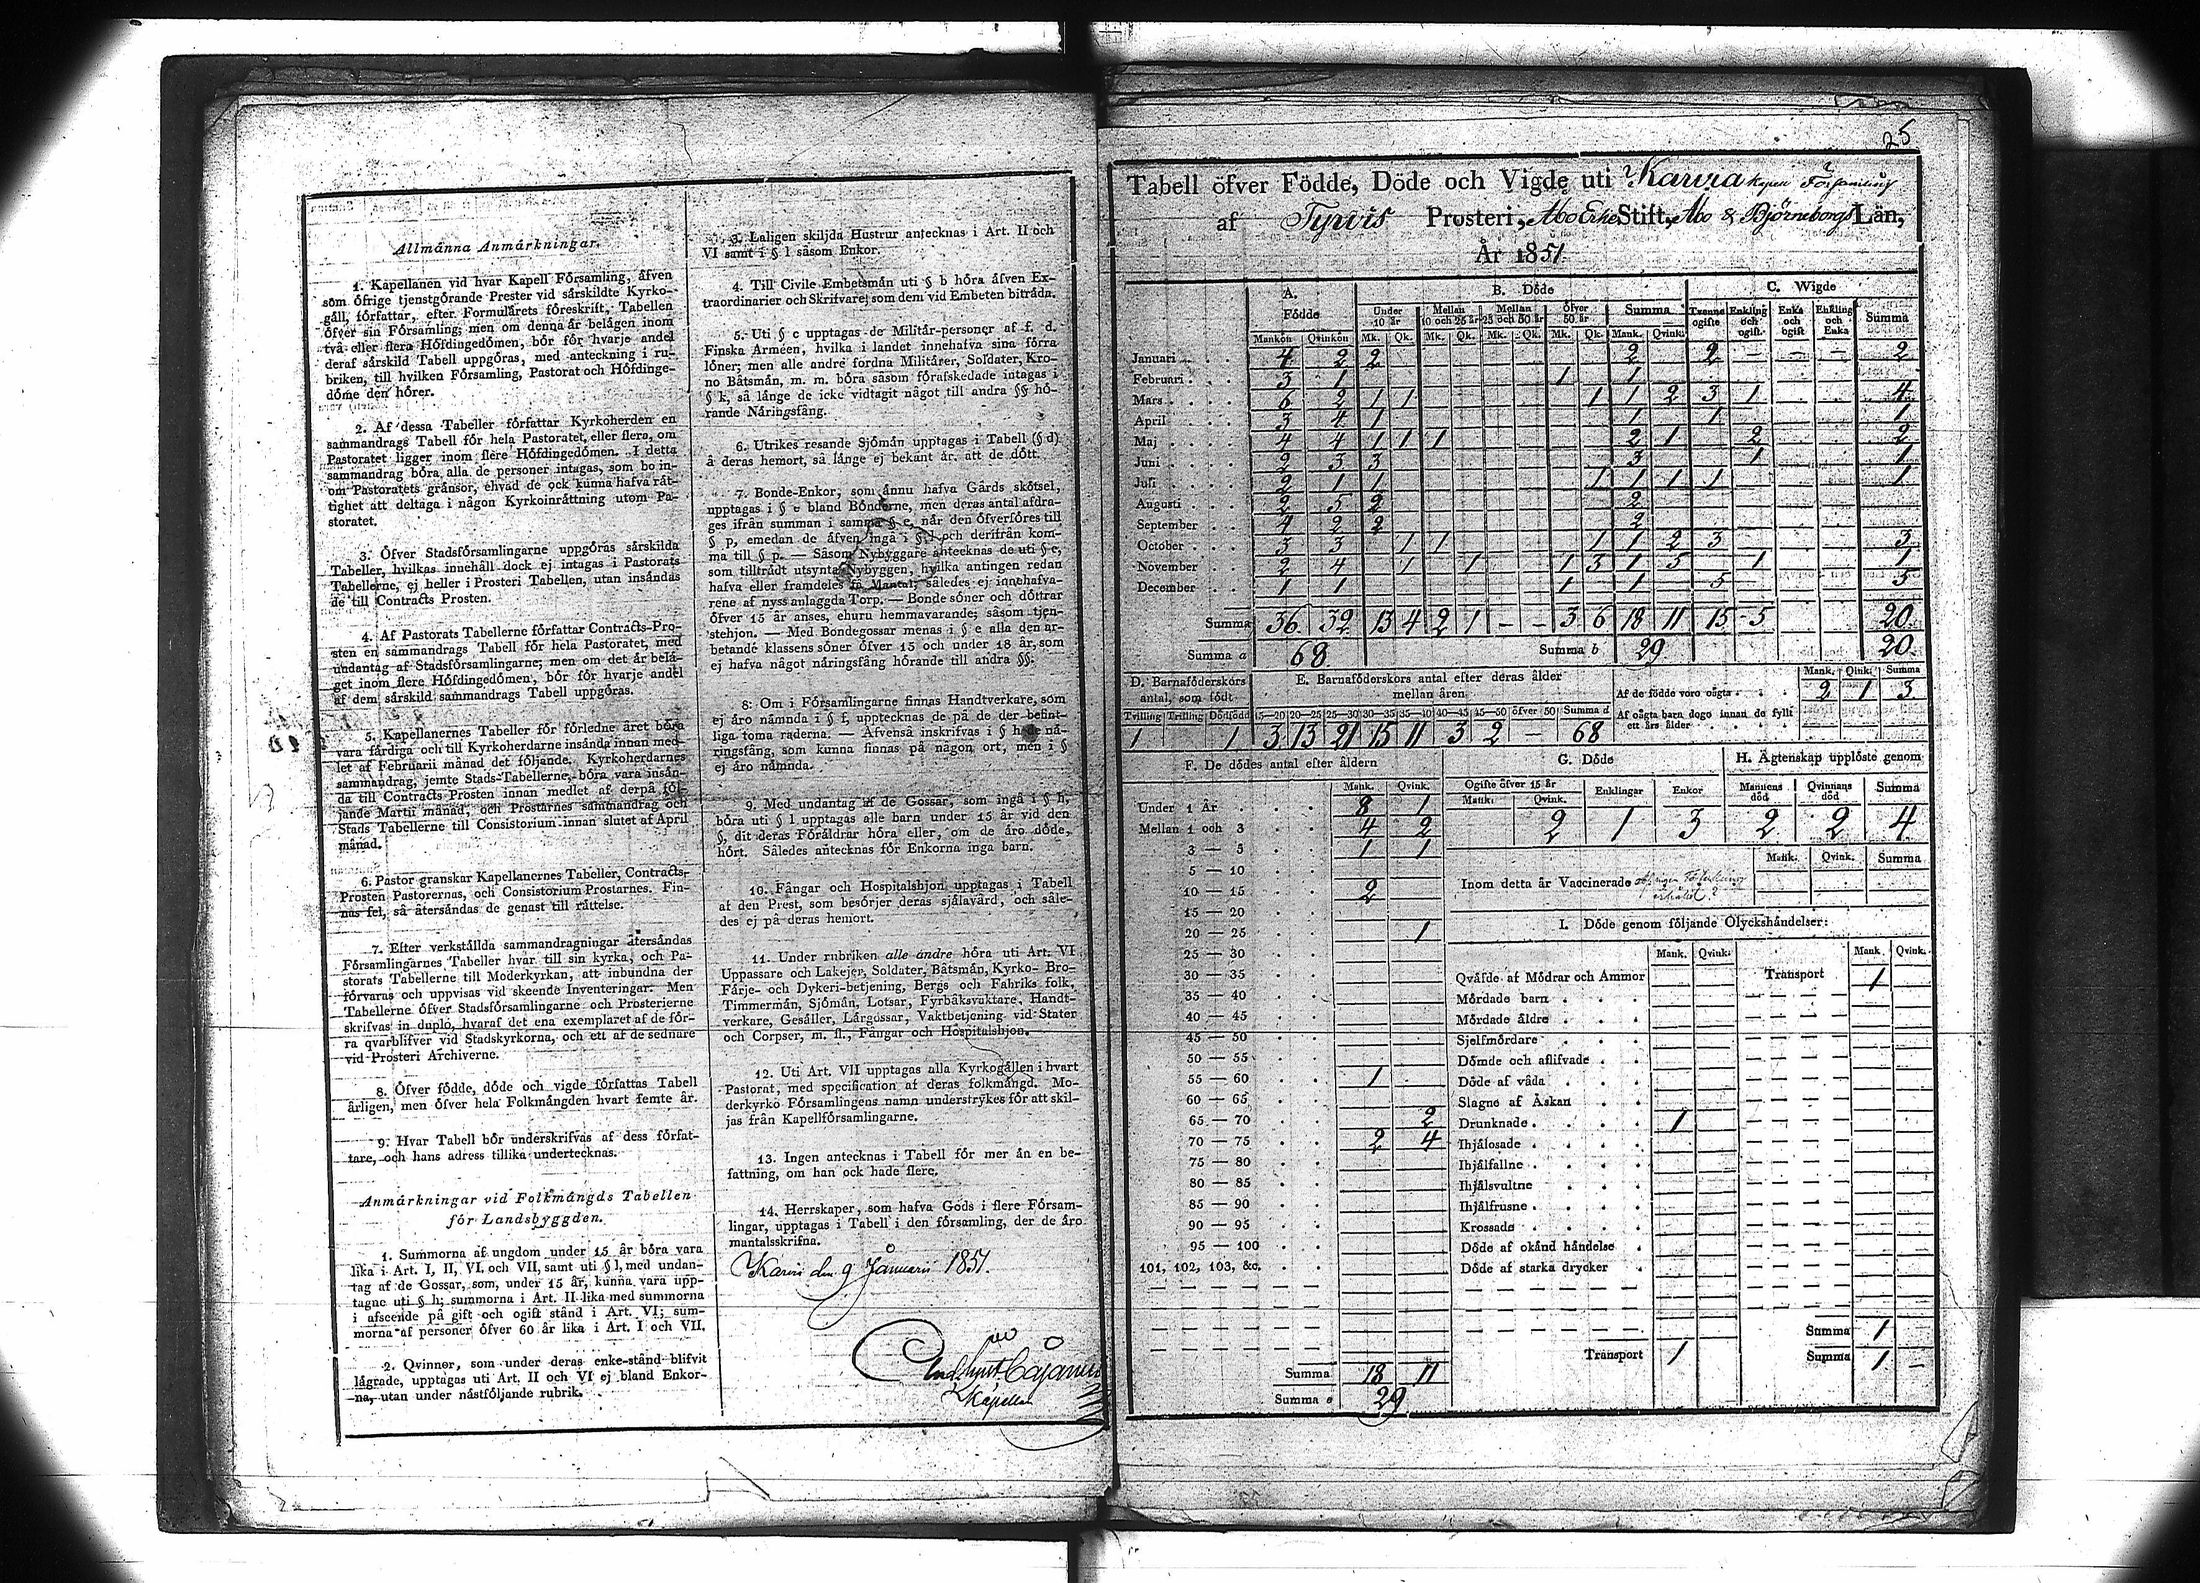 Allmänna Anmärkningar.
1. Kapellanen vid hvar Kapell Församling, äfven
som öfrige tjenstgörande Prester vid särskildte Kyrko-
gäll, författar, efter Formulärets föreskrift, Tabellen
öfver sin Församling; men om denna är belägen inom
två eller flera Höfdingedömen, bör för hvarje andel
deraf särskild Tabell uppgöras, med anteckning i ru-
briken, till hvilken Församling, Pastorat och Höfdinge-
döme den hörer.
2. Af dessa Tabeller författar Kyrkoherden en
sammandrags Tabell för hela Pastoratet, eller flera, om
Pastoratet ligger inom flere Höfdingedömen. I detta
sammandrag böra alla de personer intagas, som bo in-
om Pastoratets gränsor, ehvad de ock kunna hafva rät-
tighet att deltaga i någon Kyrkoinrättning utom Pa-
storatet.
3. Öfver Stadsförsamlingarne uppgöras särskilda
Tabeller, hvilkas innehåll dock ej intagas i Pastorats
Tabellerne, ej heller i Prosteri Tabellen, utan insändas
de till Contracts Prosten.
4. Af Pastorats Tabellerne författar Contracts-Pro-
sten en sammandrags Tabell för hela Pastoratet, med
undantag af Stadsförsamlingarne; men om det är belä-
get inom flere Höfdingedömen, bör för hvarje andel
af dem särskild sammandrags Tabell uppgöras.
5. Kapellanernes Tabeller för förledne året böra
vara färdiga och till Kyrkoherdarne insända innan med-
let af Februarii månad det följande. Kyrkoherdarnes
sammandrag, jemte Stads-Tabellerne, böra vara insän-
da till Contracts Prosten innan medlet af derpå föl-
jande Martii månad, och Prostarnes sammandrag och
Stads Tabellerne till Consistorium innan slutet af April
månad.
6. Pastor granskar Kapellanernes Tabeller, Contracts-
Prosten Pastorernas, och Consistorium Prostarnes. Fin-
nas fel, så återsändas de genast till rättelse.
7. Efter verkställda sammandragningar återsändas
Församlingarnes Tabeller hvar till sin kyrka, och Pa-
storats Tabellerne till Moderkyrkan, att inbundna der
förvaras och uppvisas vid skeende Inventeringar. Men
Tabellerne öfver Stadsförsamlingarne och Prosterierne
skrifvas in duplo, hvaraf det ena exemplaret af de för-
ra qvarblifver vid Stadskyrkorna, och ett af de sednare
vid Prosteri Archiverne.
8. Öfver födde, döde och vigde författas Tabell
årligen, men öfver hela Folkmängden hvart femte år.
9. Hvar Tabell bör underskrifvas af dess förfat-
tare, och hans adress tillika undertecknas.
Anmärkningar vid Folkmängds Tabellen
för Landsbyggden.
1. Summorna af ungdom under 15 år böra vara
lika i Art. I, II, VI. och VII, samt uti § l, med undan-
tag af de Gossar, som, under 15 år, kunna vara upp-
tagne uti § h; summorna i Art. II lika med summorna
i afseende på gift och ogift stånd i Art. VI; sum-
morna af personer öfver 60 år lika i Art. I och VII.
2. Qvinnor, som under deras enke-stånd blifvit
lägrade, upptagas uti Art. II och VI ej bland Enkor-
na, utan under nästföljande rubrik.
3. Laligen skiljda Hustrur antecknas i Art. II och
VI samt i § l såsom Enkor.
4. Till Civile Embetsmän uti § b höra äfven Ex-
traordinarier och Skrifvare, som dem vid Embeten biträda.
5. Uti § c upptagas de Militär-personer af f. d.
Finska Armeen, hvilka i landet innehafva sina förra
löner; men alle andre fordna Militärer, Soldater, Kro-
no Båtsmän, m. m. böra såsom förafskedade intagas i
§ k, så länge de icke vidtagit något till andra §§ hö-
rande Näringsfång.
6. Utrikes resande Sjömän upptagas i Tabell (§ d)
å deras hemort, så länge ej bekant är, att de dött.
7. Bonde-Enkor, som ännu hafva Gårds skötsel,
upptagas i § e bland Bönderne, men deras antal afdra-
ges ifrån summan i samma § e, når den öfverföres till
§ p, emedan de äfven ingå i § l och derifrån kom-
ma till § p. — Såsom Nybyggare antecknas de uti § e,
som tillträdt utsynta Nybyggen, hvilka antingen redan
hafva eller framdeles få Mantal; således ej innehafva-
rene af nyss anlaggda Torp. — Bonde söner och döttrar
öfver 15 år anses, ehuru hemmavarande, såsom tjen-
stehjon. — Med Bondegossar menas i § e alla den ar-
betande klassens söner öfver 15 och under 18 år, som
ej hafva något näringsfång hörande till andra §§.
8. Om i Församlingarne finnas Handtverkare, som
ej äro nämnda i § f, upptecknas de på de der befint-
liga toma raderna. — Äfvenså inskrifvas i § h de nä-
ringsfång, som kunna finnas på någon ort, men i §
ej äro nämnda.
9. Med undantag af de Gossar, som ingå i § h,
böra uti § l upptagas alle barn under 15 år vid den
§, dit deras Föräldrar höra eller, om de äro döde,
hört. Således antecknas för Enkorna inga barn.
10. Fångar och Hospitalshjon upptagas i Tabell
af den Prest, som besörjer deras själavård, och såle-
des ej på deras hemort.
11. Under rubriken alle andre höra uti Art. VI
Uppassare och Lakejer, Soldater, Båtsmän, Kyrko- Bro-
Färje- och Dykeri-betjening, Bergs och Fabriks folk,
Timmermän, Sjömän, Lotsar, Fyrbåksvaktare, Handt-
verkare, Gesäller, Lärgossar, Vaktbetjening vid Stater
och Corpser, m. fl., Fångar och Hospitalshjon.
12. Uti Art. VII upptagas alla Kyrkogällen i hvart
Pastorat, med specification af deras folkmängd. Mo-
derkyrko Församlingens namn understrykes för att skil-
jas från Kapellförsamlingarne.
13. Ingen antecknas i Tabell för mer än en be-
fattning, om han ock hade flere.
14. Herrskaper, som hafva Gods i flere Försam-
lingar, upptagas i Tabell i den församling, der de äro
mantalsskrifna.
Karvi den 9 Januarii 1851.
Cajanus
Kapellan
25
Tabell öfver Födde, Döde och Vigde uti Karvia Kapell Församling
af Tyrvis Prosteri, Åbo Erke Stift, Åbo & Björneborgs Län,
År 1851
A. Födde B. Döde C. Wigde
Under 10 år Mellan 10 och 25 år Mellan 25 och 50 år Öfver 50 år Summa Tvenne ogifte Enkling och ogift Enka och ogift Enkling och Enka Summa
Mankön Qvinkön Mk. Qk. Mk. Qk. Mk. Qk. Mk. Qk. Mank. Qvink.
Januari 4 2 2 2 2 — — — 2
Februari 3 1 1 1
Mars 6 2 1 1 1 1 2 3 1 4
April 3 4 1 1 1 1
Maj 4 4 1 1 1 2 1 2 2
Juni 2 3 3 3 1 1
Juli 2 1 1 1 1 1 1 1
Augusti 2 5 2 2
September 4 2 2 2
October 3 3 1 1 1 1 2 3 3
November 2 4 1 1 1 3 1 5 1 1
December 1 1 1 1 5 5
Summa 36 32 13 4 2 1 — — 3 6 18 11 15 5 20
Summa a 68 Summa b 29 20
D. Barnaföderskors antal, som födt
Tvilling Trilling Dödfödd
1 1
E. Barnaföderskors antal efter deras ålder mellan åren
15—20 20—25 25—30 30—35 35—40 40—45 45—50 öfver 50 Summa d
3 13 21 15 11 3 2 — 68
Mank. Qvink. Summa
Af de födde voro oägta 2 1 3
Af oägta barn dogo innan de fyllt ett års ålder
F. De dödes antal efter åldern
Mank. Qvink.
Under 1 År 8 1
Mellan 1 och 3 4 2
3 — 5 1 1
5 — 10
10 — 15 2
15 — 20
20 — 25 1
25 — 30
30 — 35
35 — 40
40 — 45
45 — 50
50 — 55
55 — 60 1
60 — 65
65 — 70 2
70 — 75 2 4
75 — 80
80 — 85
85 — 90
90 — 95
95 — 100
101, 102, 103, &c.
Summa 18 11
Summa e 29
G. Döde
Ogifte öfver 15 år Enklingar Enkor
Mank. Qvink.
2 1 3
H. Ägtenskap upplöste genom
Mannens död Qvinnans död Summa
2 2 4
Mank. Qvink. Summa
Inom detta år Vaccinerade
I. Döde genom följande Olyckshändelser:
Mank. Qvink. Mank. Qvink.
Qväfde af Mödrar och Ammor Transport 1
Mördade barn
Mördade äldre
Sjelfmördare
Dömde och aflifvade
Döde af våda
Slagne af Åskan
Drunknade 1
Ihjälosade
Ihjälfallne
Ihjälsvultne
Ihjälfrusne
Krossade
Döde af okänd händelse
Döde af starka drycker
Summa 1
Transport 1 Summa 1 —